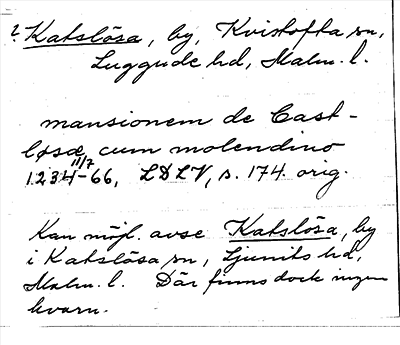 ? Katslösa, by, Kvistofta sn,
Luggude hd, Malm. l.
mansionem de Cast-
løsæ cum molendino
1234 11/7 -66, LDLV, s. 174. orig.
Kan möjl. avse Katslösa, by
i Katslösa sn, Ljunits hd,
Malm. l. Där finns dock ingen
kvarn.